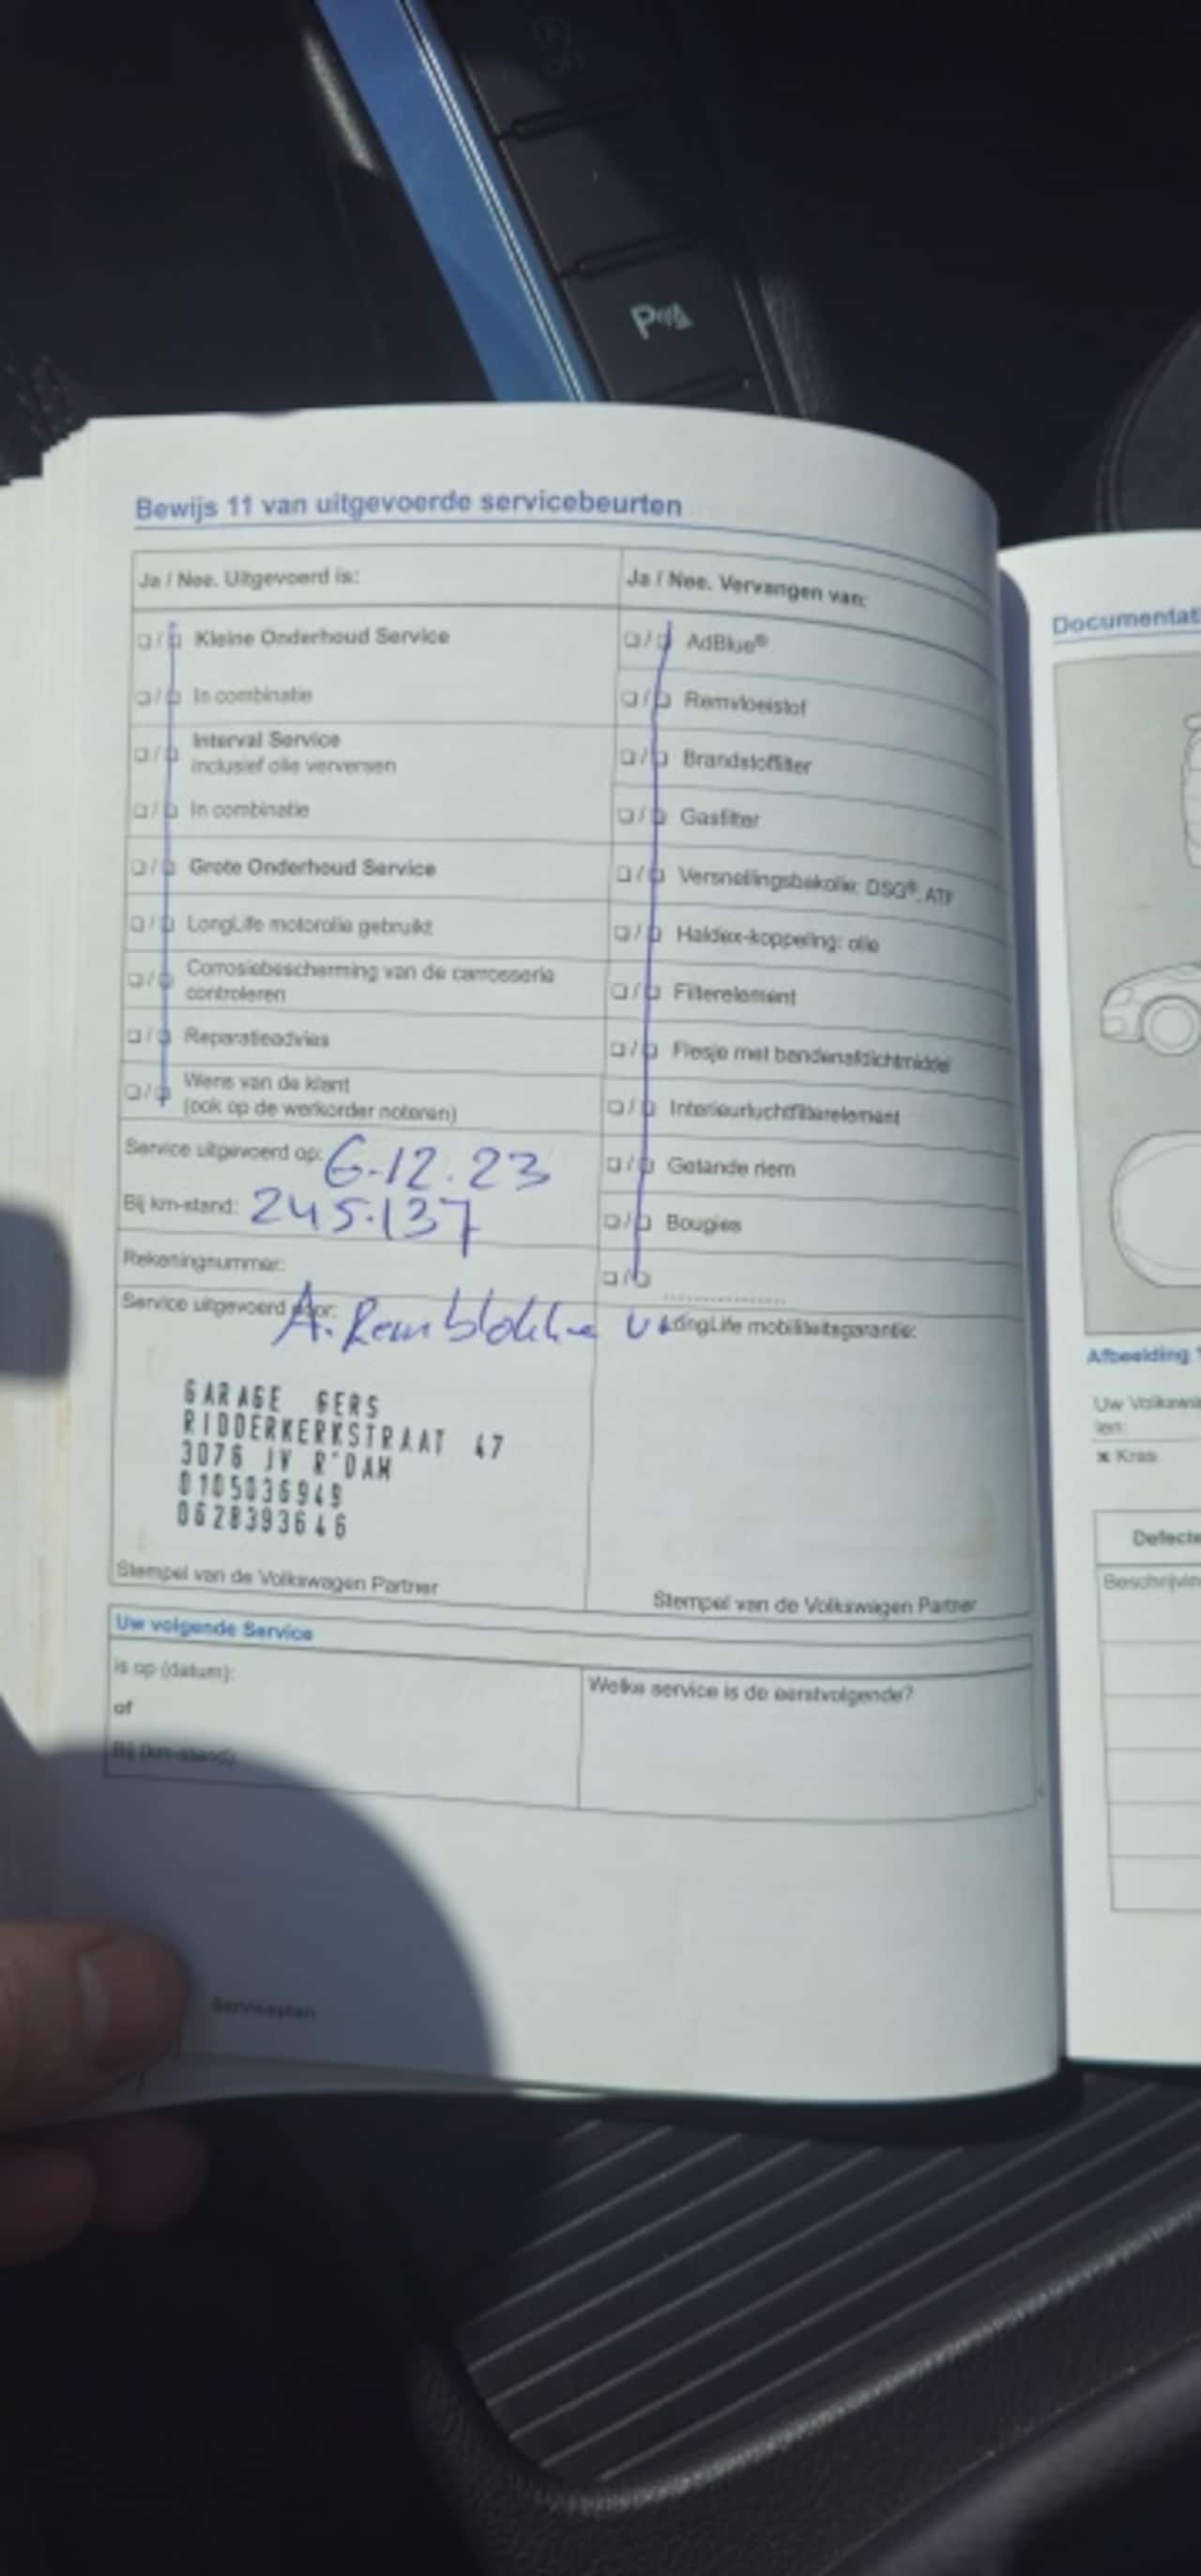 P
Bewijs 11 van uitgevoerde servicebeurten
Ja / Nee. Uitgevoerd is:
Kleine Onderhoud Service
In combinatie
Interval Service
inclusief olie verversen
In combinatie
Grote Onderhoud Service
LongLife motorolie gebruikt
Corrosiebescherming van de carrosserie
controleren
Reparatieadvies
Wens van de klant
(ook op de werkorder noteren)
Service uitgevoerd op: 6-12.23
Bij km-stand: 245.137
Rekeningnummer:
Service uitgevoerd door: A. Remblokke
Ja / Nee. Vervangen van:
AdBlue®
Remvloeistof
Brandstoffilter
Gasfilter
Versnellingsbakolie: DSG®, ATF
Haldex-koppeling: olie
Filterelement
Flesje met bandenafdichtmiddel
Interieurluchtfilterelement
Getande riem
Bougies
LongLife mobiliteitsgarantie:
GARAGE GERS
RIDDERKERKSTRAAT 47
3076 JV R'DAM
0105036949
0628393646
Stempel van de Volkswagen Partner
Stempel van de Volkswagen Partner
Uw volgende Service
is op (datum):
of
Bij (km-stand):
Welke service is de eerstvolgende?
Serviceplan
Documentat
Afbeelding 1
Uw Volkswa
len:
Kras
Defecte
Beschrijvin